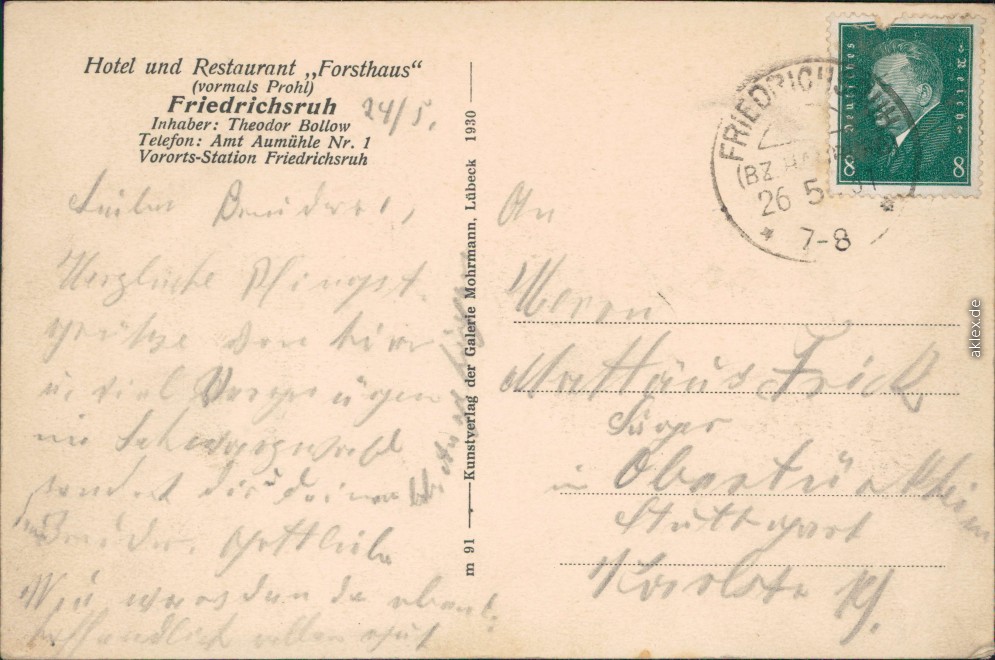 Hotel und Restaurant „Forsthaus“
(vormals Prohl)
Friedrichsruh
Inhaber: Theodor Bollow
Telefon: Amt Aumühle Nr. 1
Vororts-Station Friedrichsruh
24/5.
Lieber Bruder!,
Herzliche Pfingst
grüße von hier
u. viel Vergnügen
im Schwarzwald
sendet dir deine
Bruder. Gottlieb
Wir waren da
m 91 — Kunstverlag der Galerie Mohrmann, Lübeck 1930
Deutsches Reich
8 8
FRIEDRICHSRUH
(BZ.
26 5
7-8
An
Herrn
Matthäus Frick
in Obertürkheim
Stuttgart
Karlstr. 19.
aklex.de